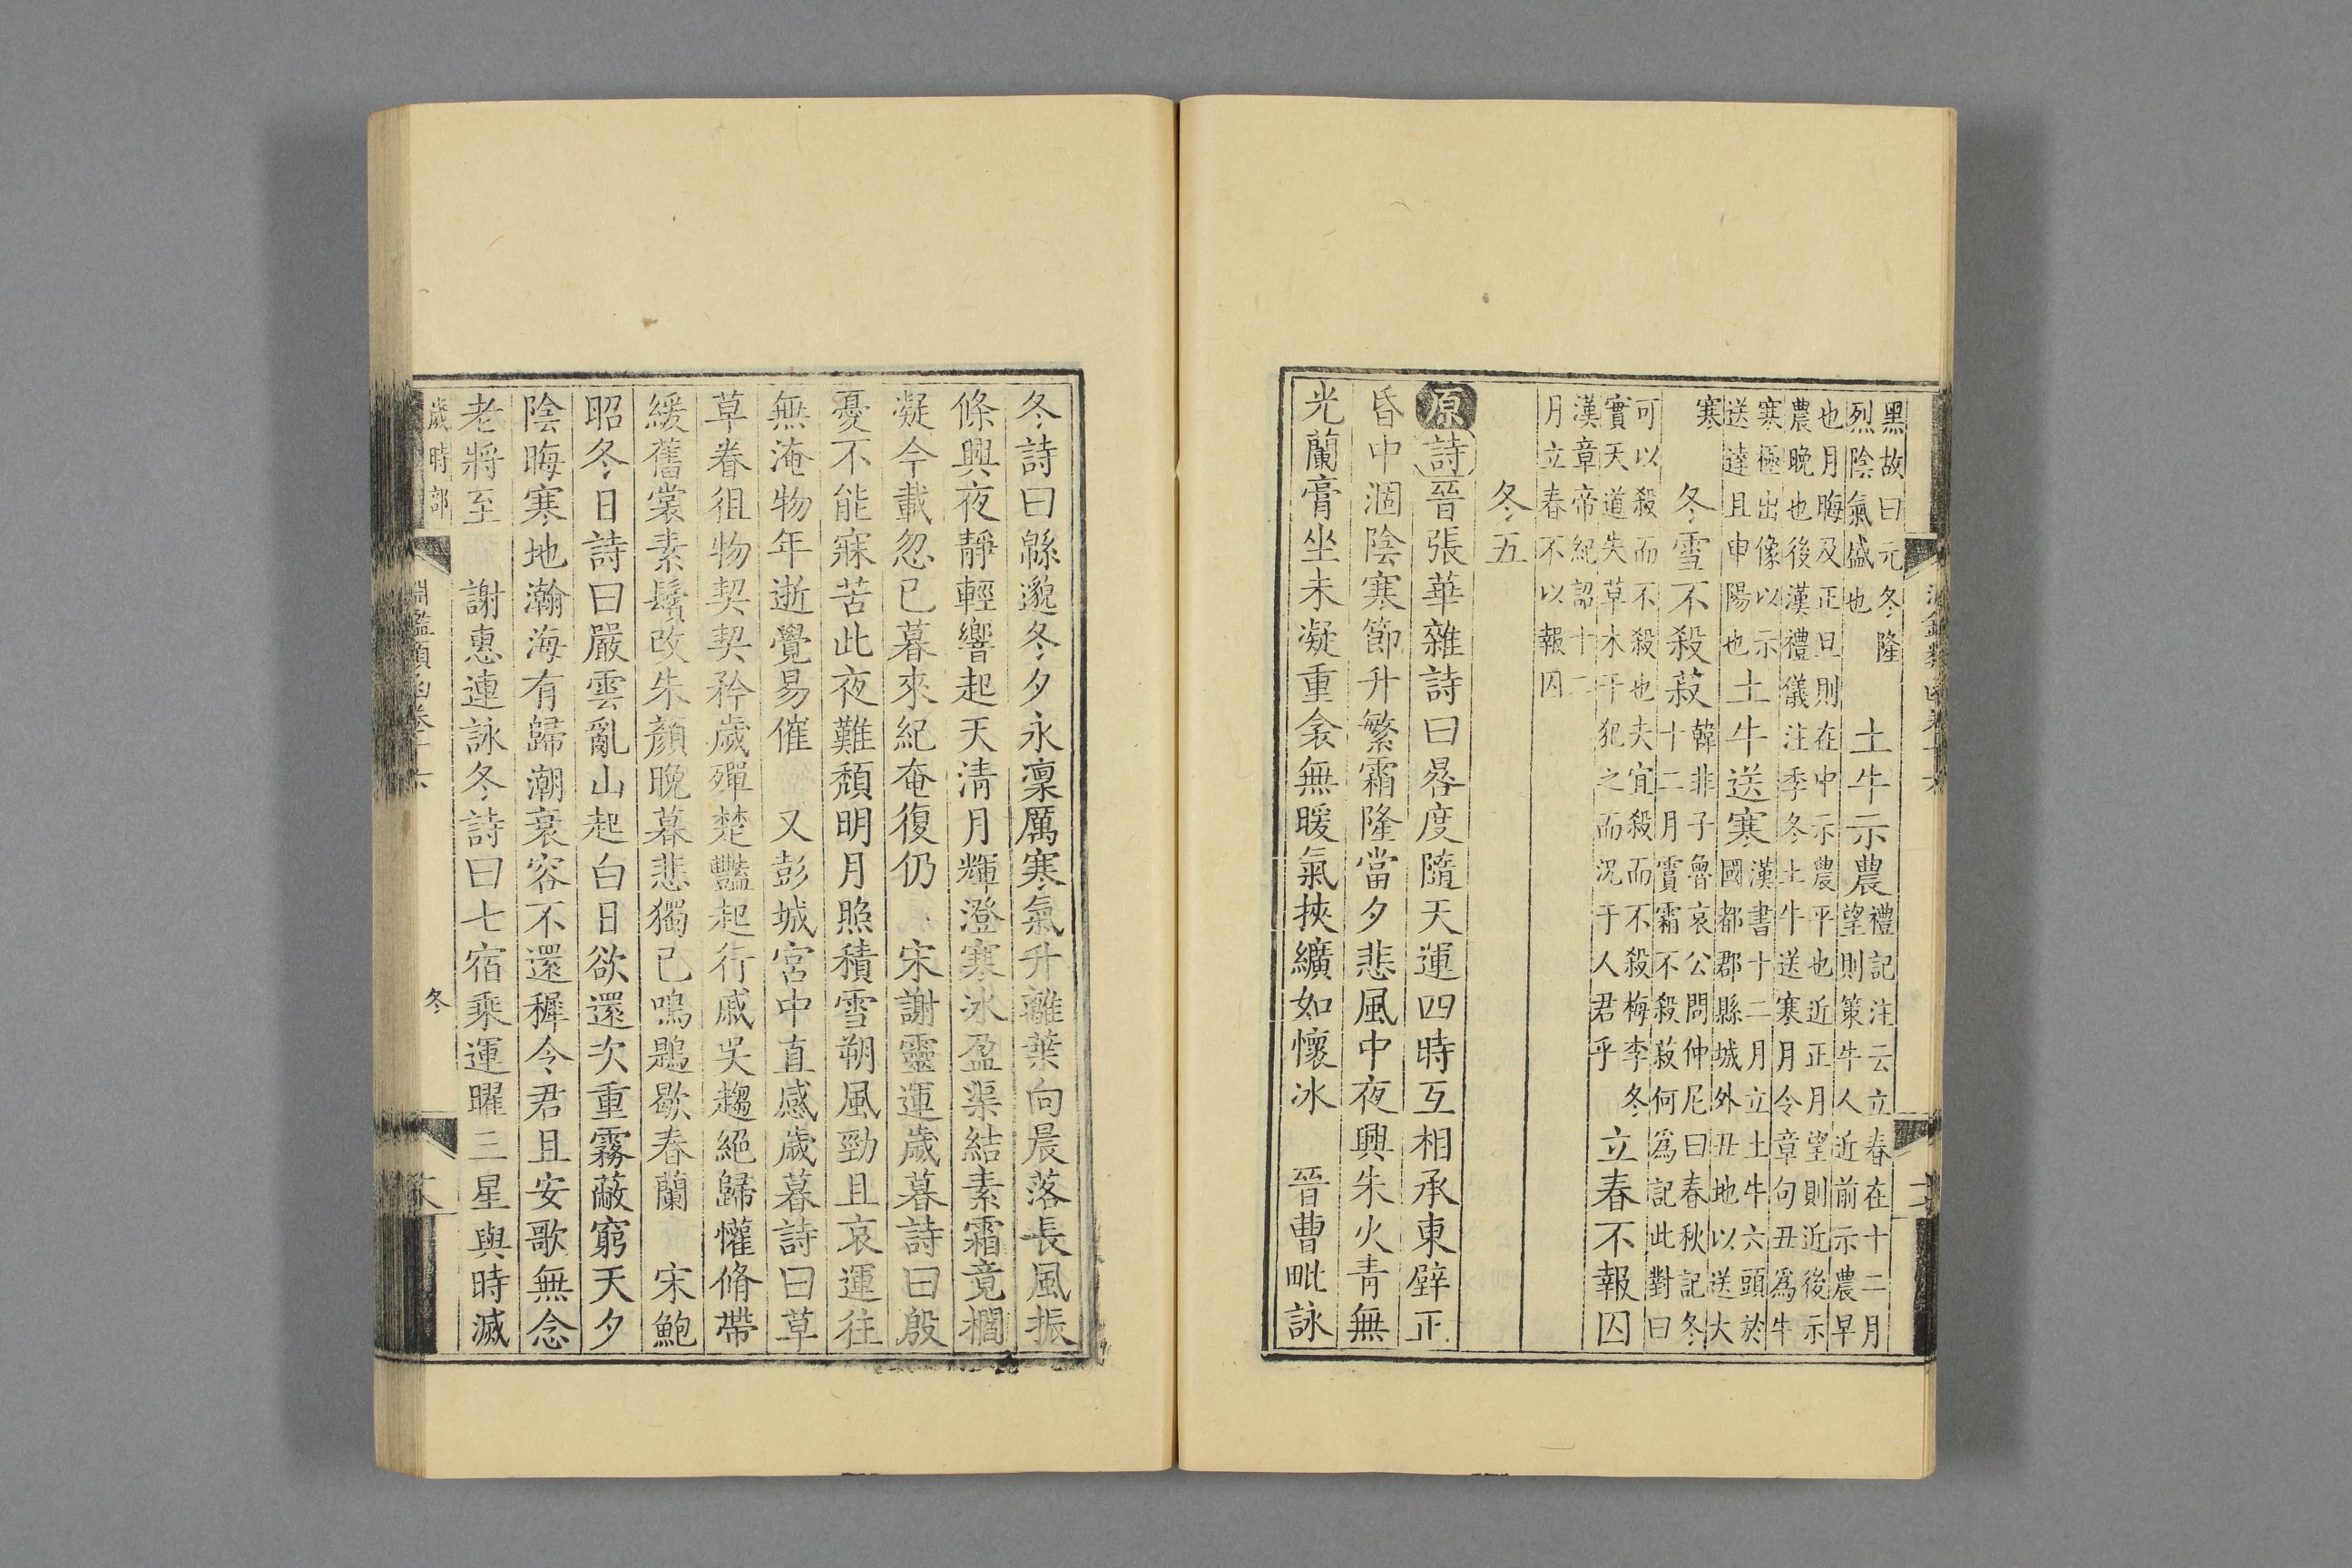 黑故曰元冬隆
烈陰氣盛也
土牛示農
禮記注云立春在十二月
望則策牛人近前示農早
也月晦及正旦則在中示農平也近正月望則近後示
農晚也後漢禮儀注季冬土牛送寒月令章句丑為牛
寒極出像以示
送達且申陽也
土牛送寒
漢書十二月立土牛六頭於
國都郡縣城外丑地以送大
寒
冬雪不殺菽
韓非子魯哀公問仲尼曰春秋記冬
十二月霣霜不殺菽何為記此對曰
可以殺而不殺也夫宜殺而不殺梅李冬
實天道失草木干犯之而況于人君乎
立春不報囚
漢章帝紀詔十二
月立春不以報囚
冬五
原詩晉張華雜詩曰晷度隨天運四時互相承東壁正
昏中涸陰寒節升繁霜隆當夕悲風中夜興朱火青無
光蘭膏坐未凝重衾無暖氣挾纊如懷冰　晉曹毗詠
冬詩曰緜邈冬夕永凜厲寒氣升離葉向晨落長風振
條興夜靜輕響起天清月輝澄寒冰盈渠結素霜竟櫩
凝今載忽已暮來紀奄復仍　宋謝靈運歲暮詩曰殷
憂不能寐苦此夜難頹明月照積雪朔風勁且哀運往
無淹物年逝覺易催　又彭城宮中直感歲暮詩曰草
草眷徂物契契矜歲殫楚豔起行戚吳趨絕歸懽脩帶
緩舊裳素鬢改朱顏晚暮悲獨已鳴鶗歇春蘭　宋鮑
昭冬日詩曰嚴雲亂山起白日欲還次重霧蔽窮天夕
陰晦寒地瀚海有歸潮衰容不還穉令君且安歌無念
老將至　謝惠連詠冬詩曰七宿乘運曜三星與時滅
歲時部
淵鑑類函卷十六
冬